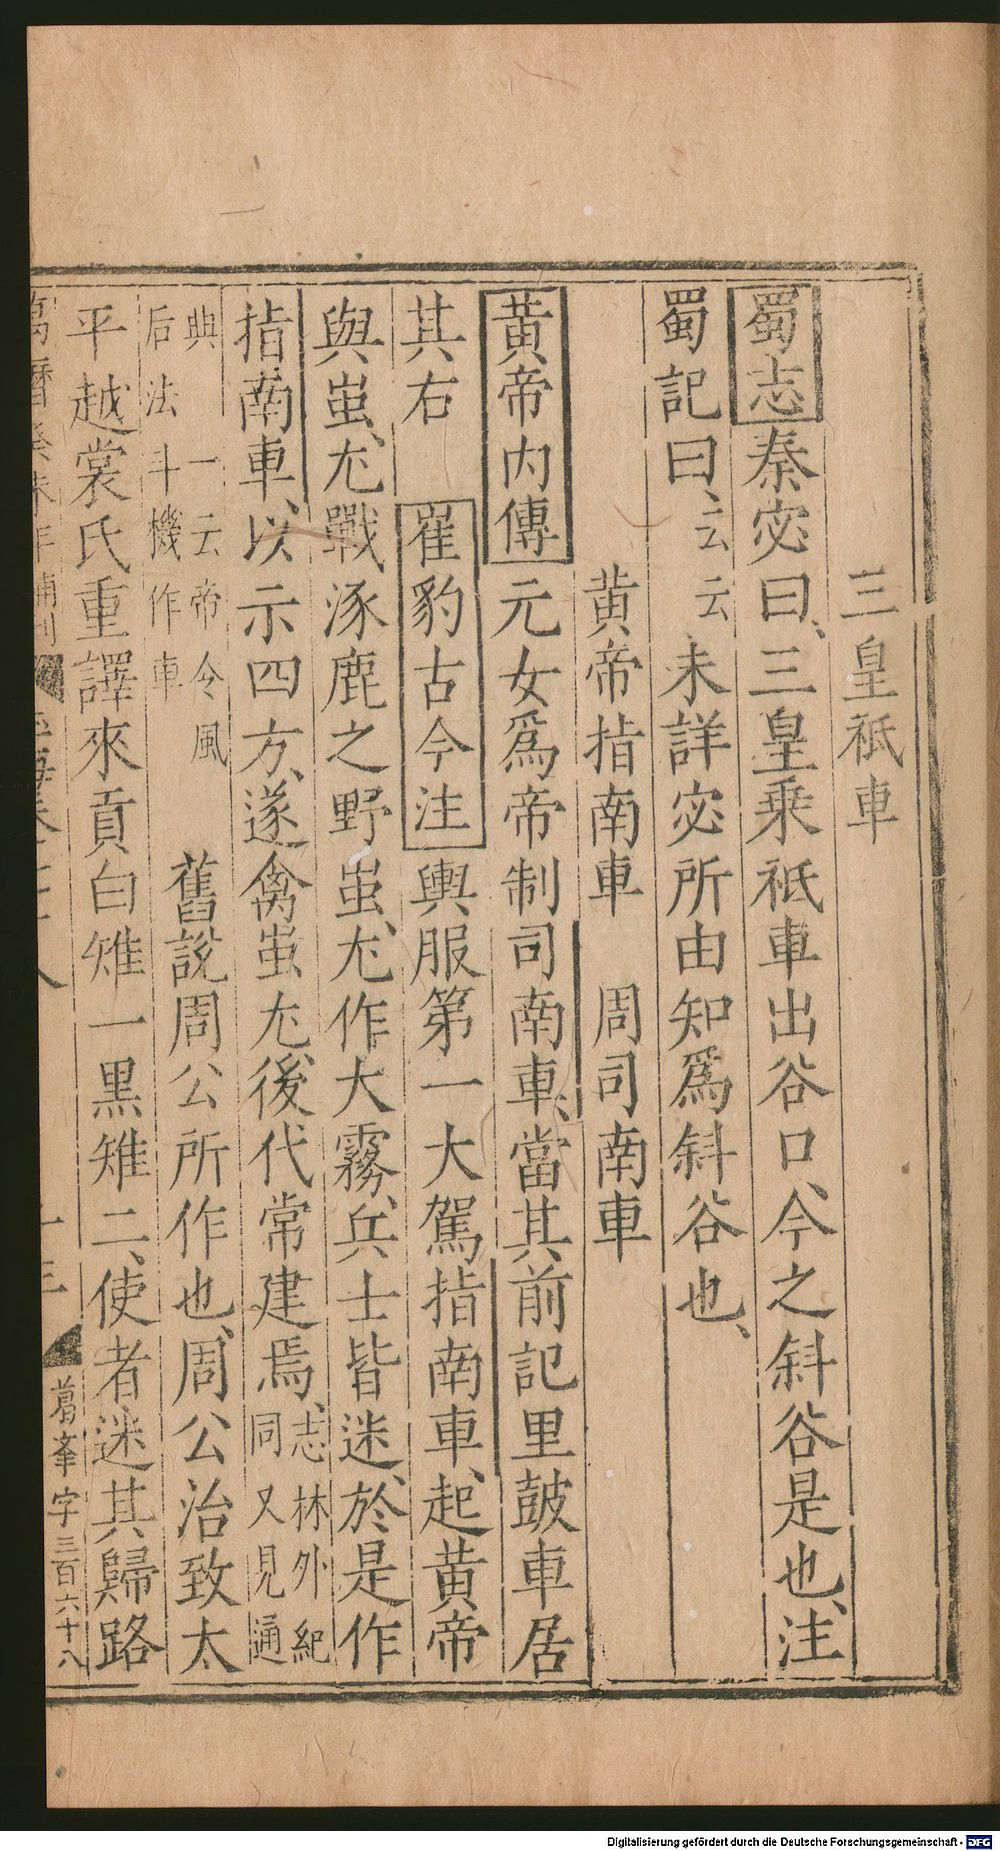 三皇祇車
蜀志秦宓曰、三皇乘祇車出谷口、今之斜谷是也、注
蜀記曰、云云未詳宓所由知爲斜谷也、
黄帝指南車　周司南車
黄帝内傳元女爲帝制司南車、當其前記里鼓車居
其右　崔豹古今注輿服第一大駕指南車、起黄帝
與蚩尤戰涿鹿之野蚩尤作大霧、兵士皆迷、於是作
指南車、以示四方、遂禽蚩尤、後代常建焉、志林外紀同又見通
典　一云帝令風后法斗機作車　舊說周公所作也、周公治致太
平越裳氏重譯來貢白雉一黑雉二、使者迷其歸路
萬曆癸未年補刊　十三　葛峯　字三百六十八
Digitalisierung gefördert durch die Deutsche Forschungsgemeinschaft - DFG